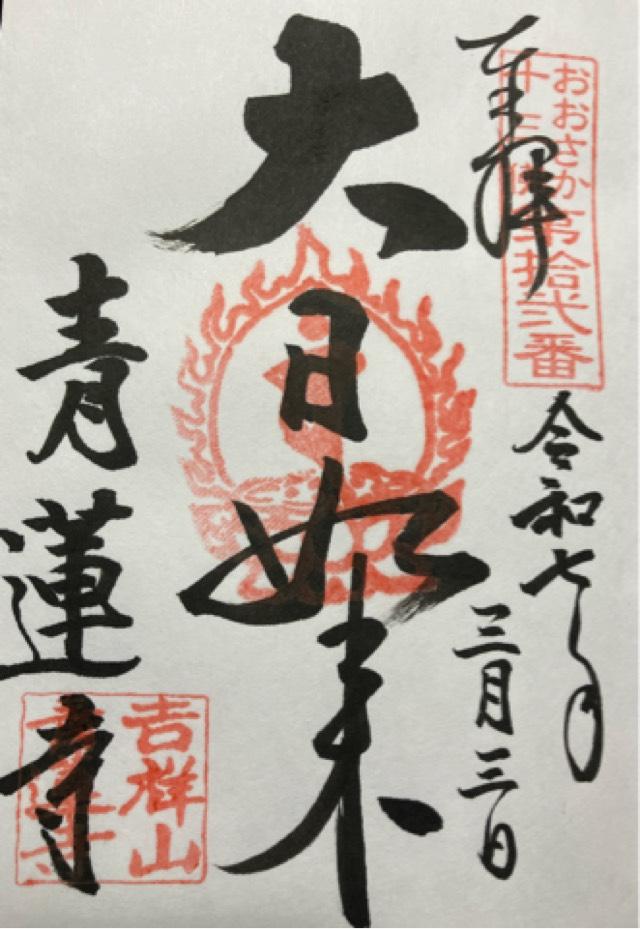 奉拝
おおさか
十三佛第拾弐番
令和七年
三月三日
大日如来
青蓮寺
吉祥山
青蓮寺